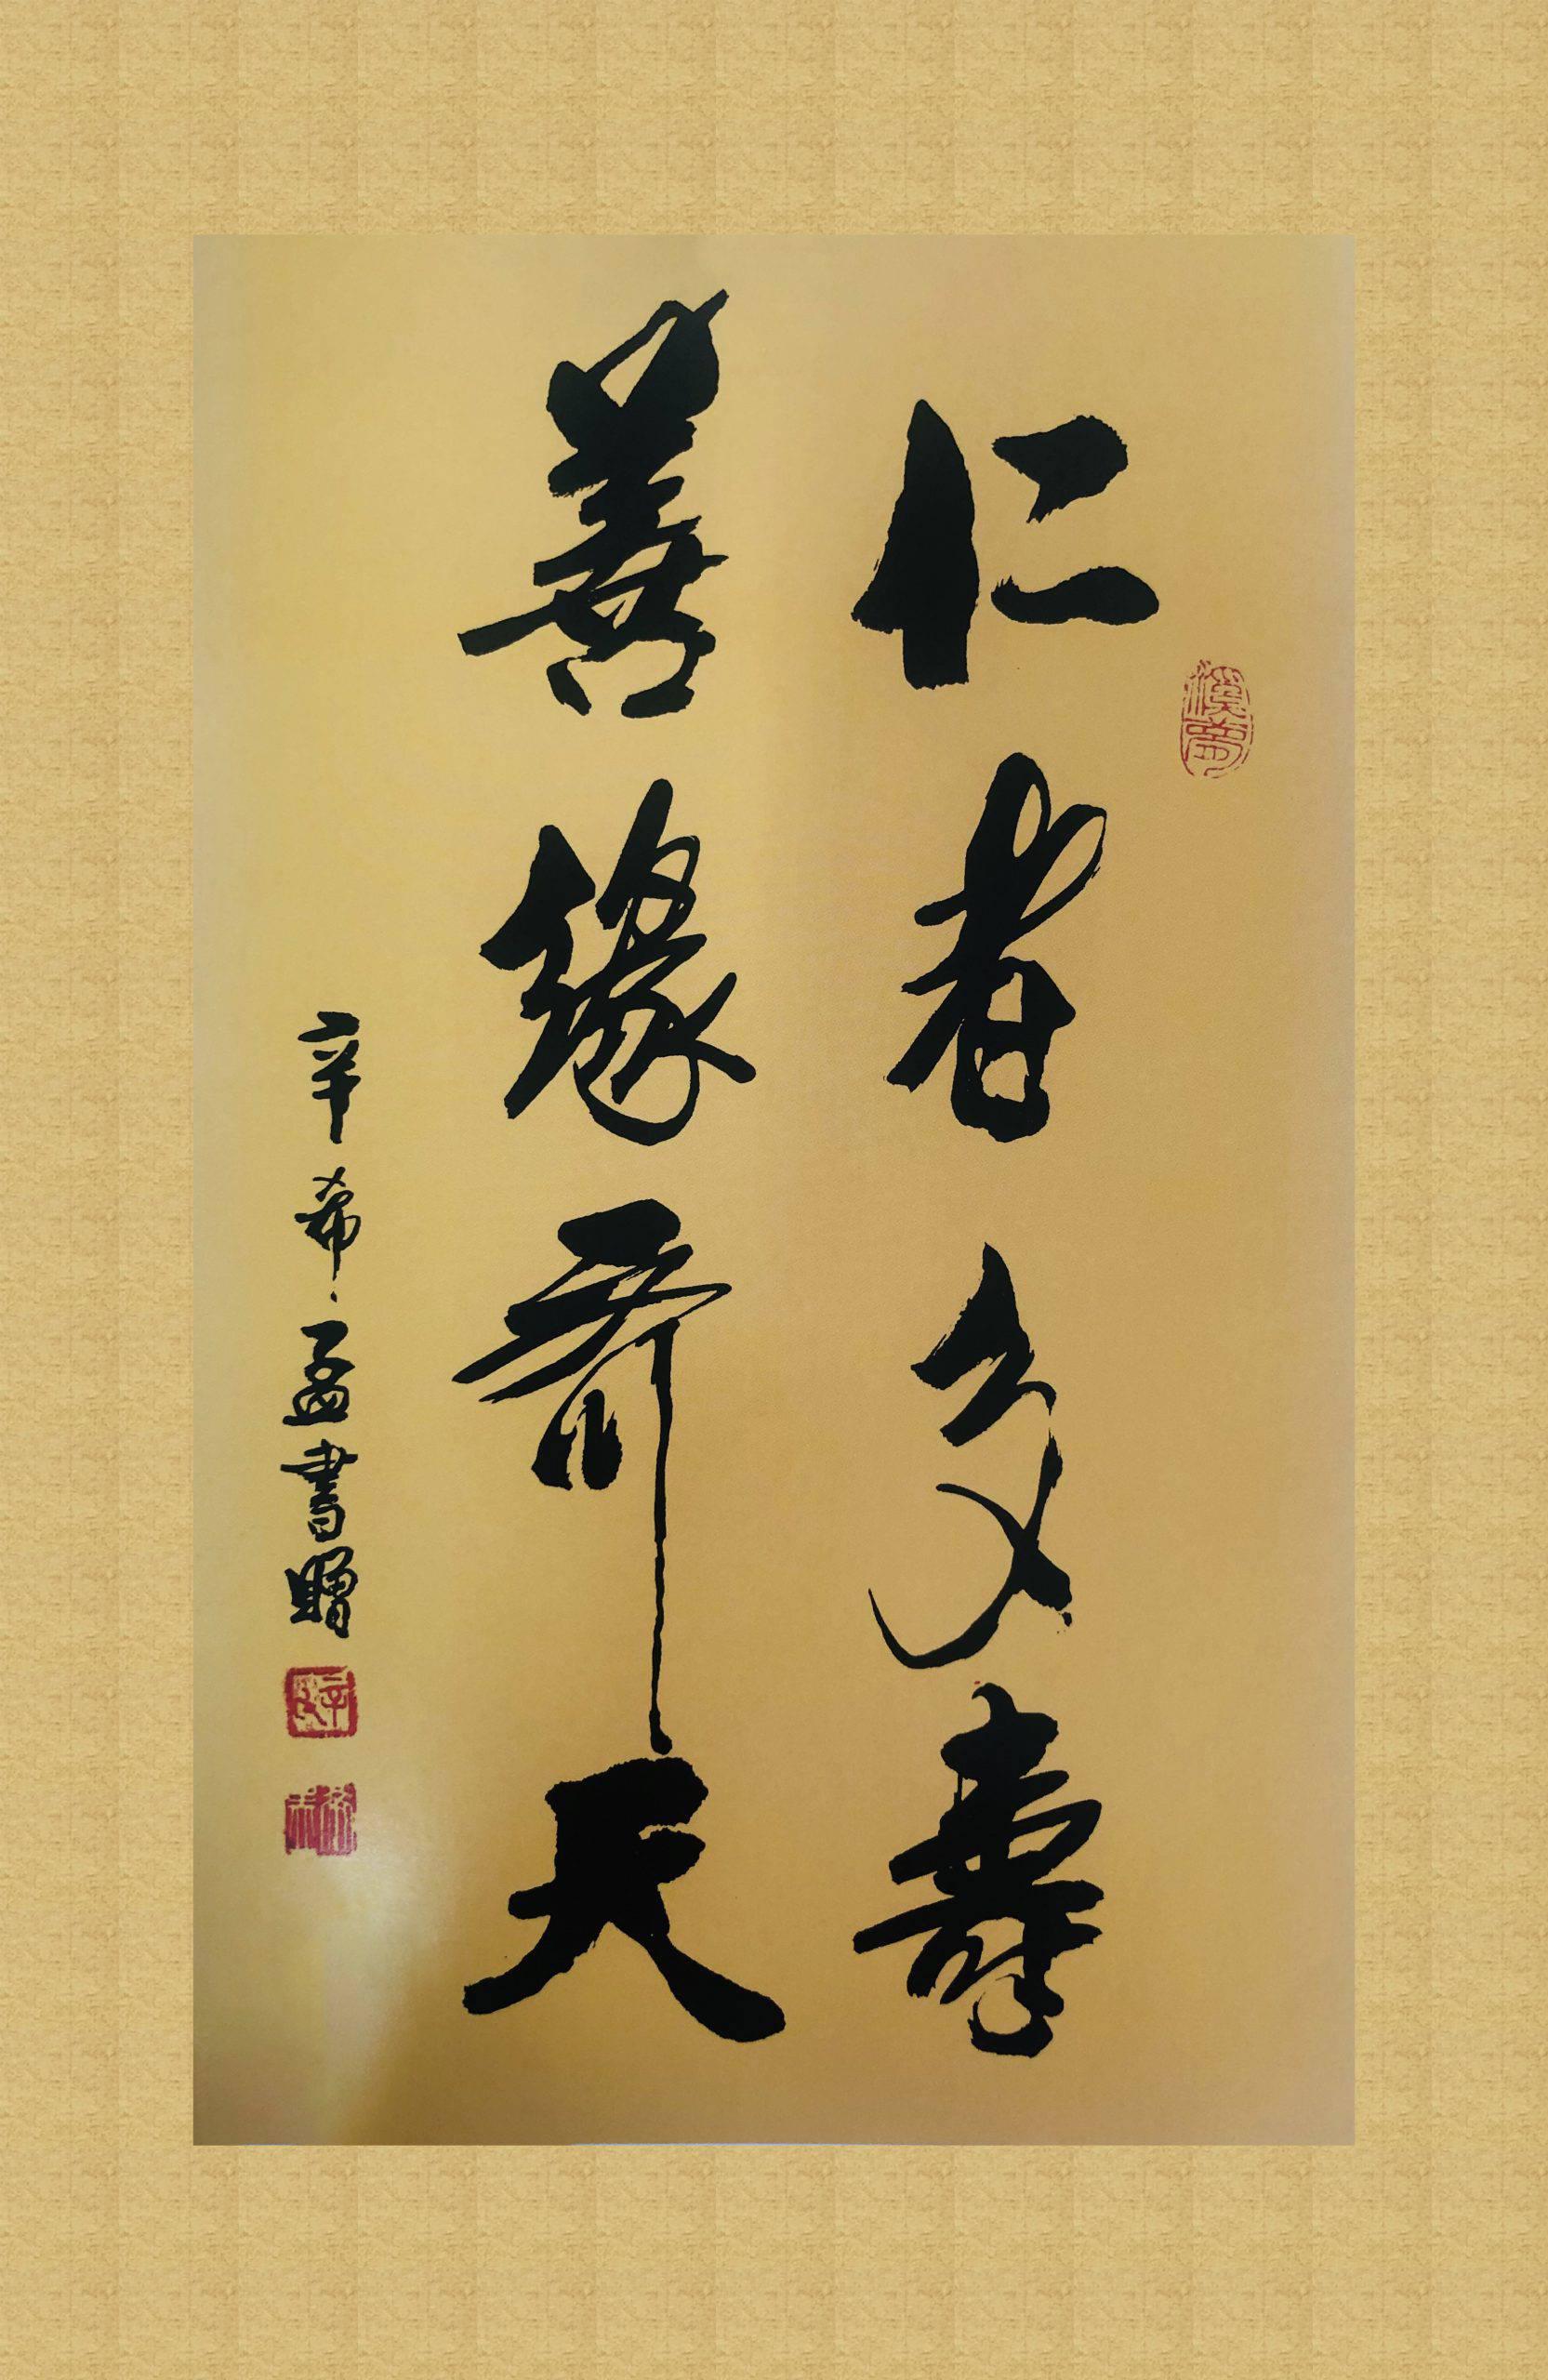 仁者多壽
善緣齊天
辛希孟書贈